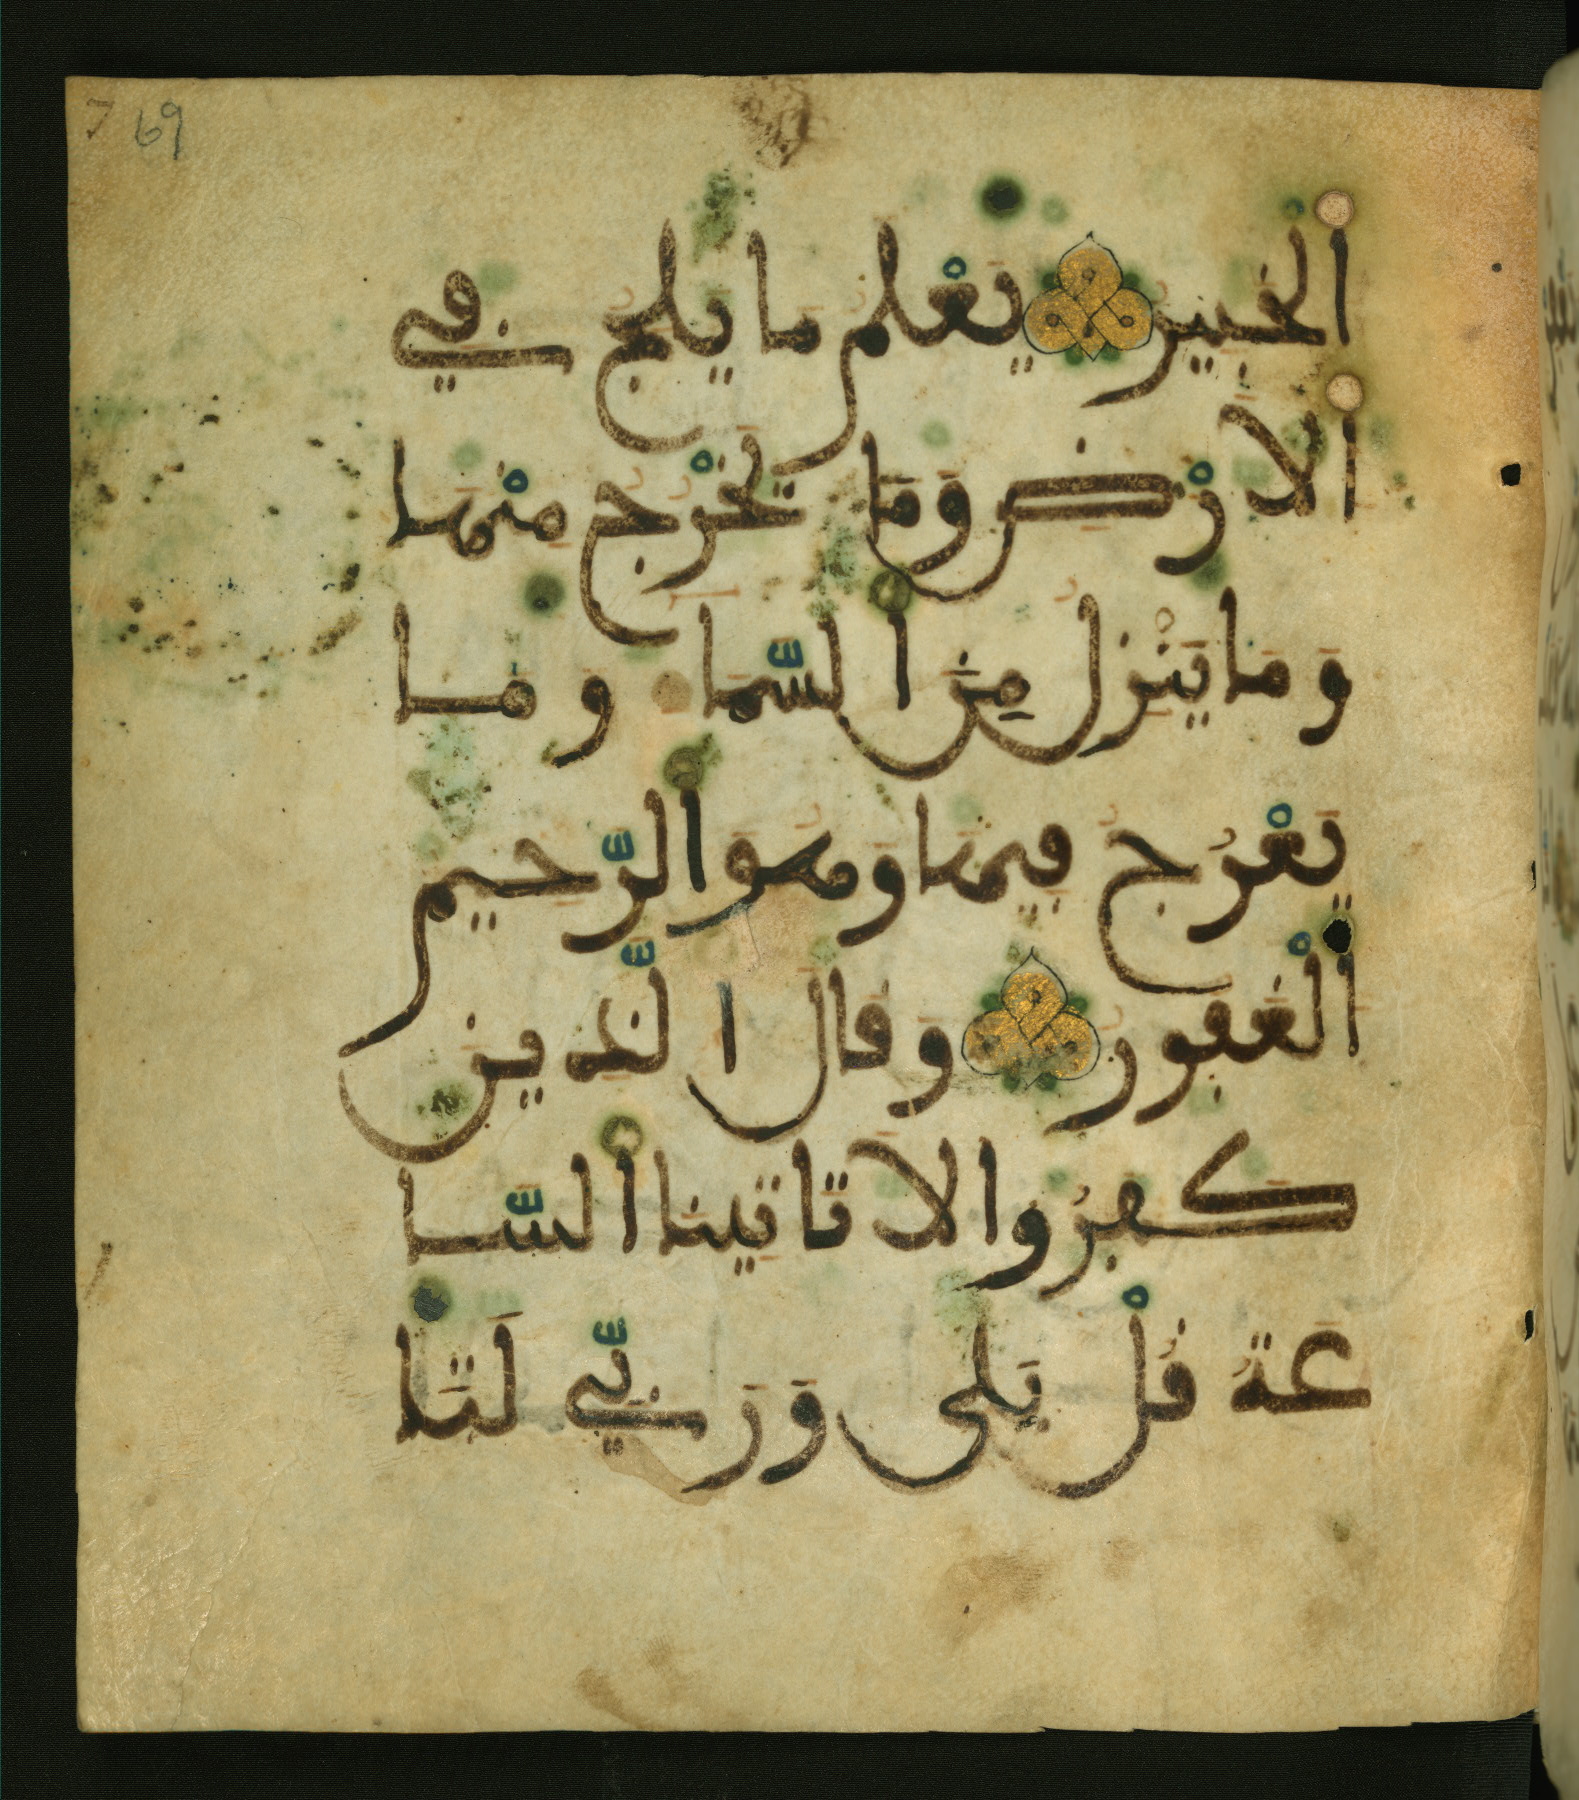 69
الخبير يعلم ما يلج في
الارض وما يخرج منها
وما ينزل من السماء وما
يعرج فيها وهو الرحيم
الغفور وقال الذين
كفروا لا تاتينا السا
عة قل بلى وربي لتا